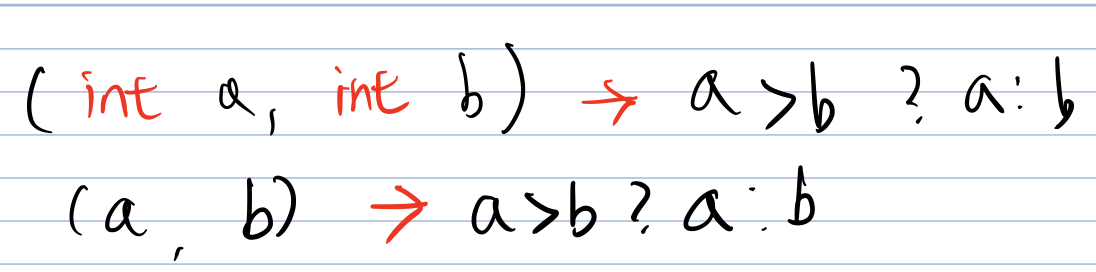 (int a, int b) → a > b ? a : b
(a, b) → a > b ? a : b